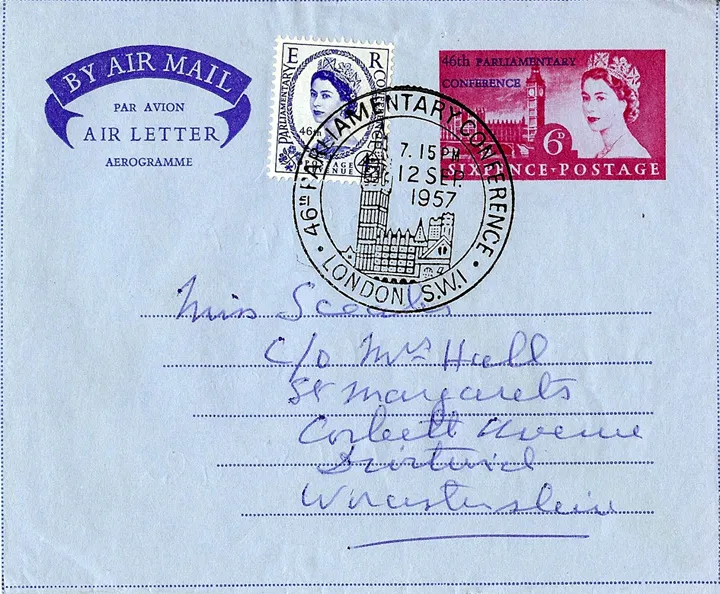 BY AIR MAIL
PAR AVION
AIR LETTER
AEROGRAMME
E R
PARLIAMENTARY
46th
46th PARLIAMENTARY
CONFERENCE
6D
SIXPENCE · POSTAGE
46TH PARLIAMENTARY CONFERENCE
7.15 PM
12 SEP.
1957
LONDON, S.W.1
Miss
C/o Mrs Hull
St Margarets
Corbett Avenue
Droitwich
Worcestershire